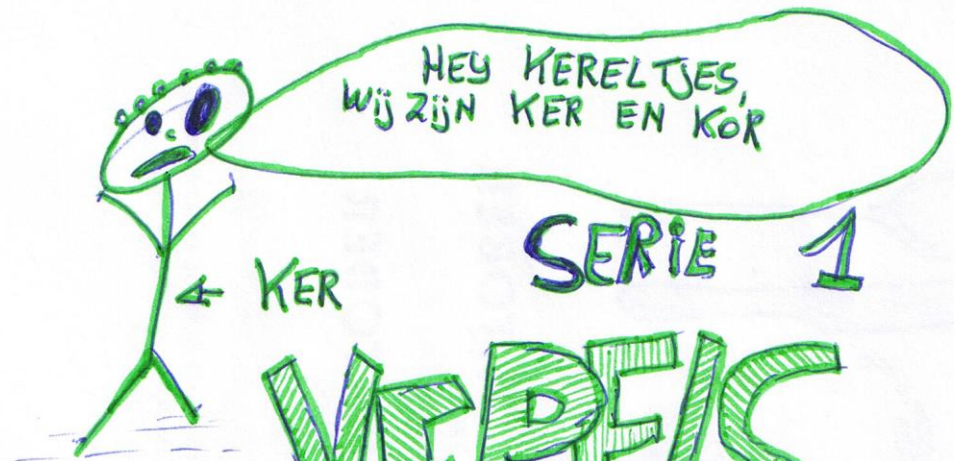 HEY KERELTJES,
Wij Zijn KER EN KOR
SERIE 1
KER